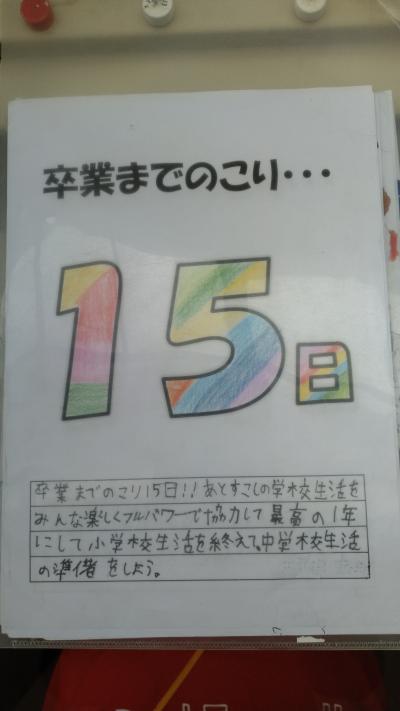 卒業までのこり・・・
15日
卒業までのこり15日!!あとすこしの学校生活を
みんな楽しくフルパワーで協力して最高の1年
にして小学校生活を終えて、中学校生活
の準備をしよう。